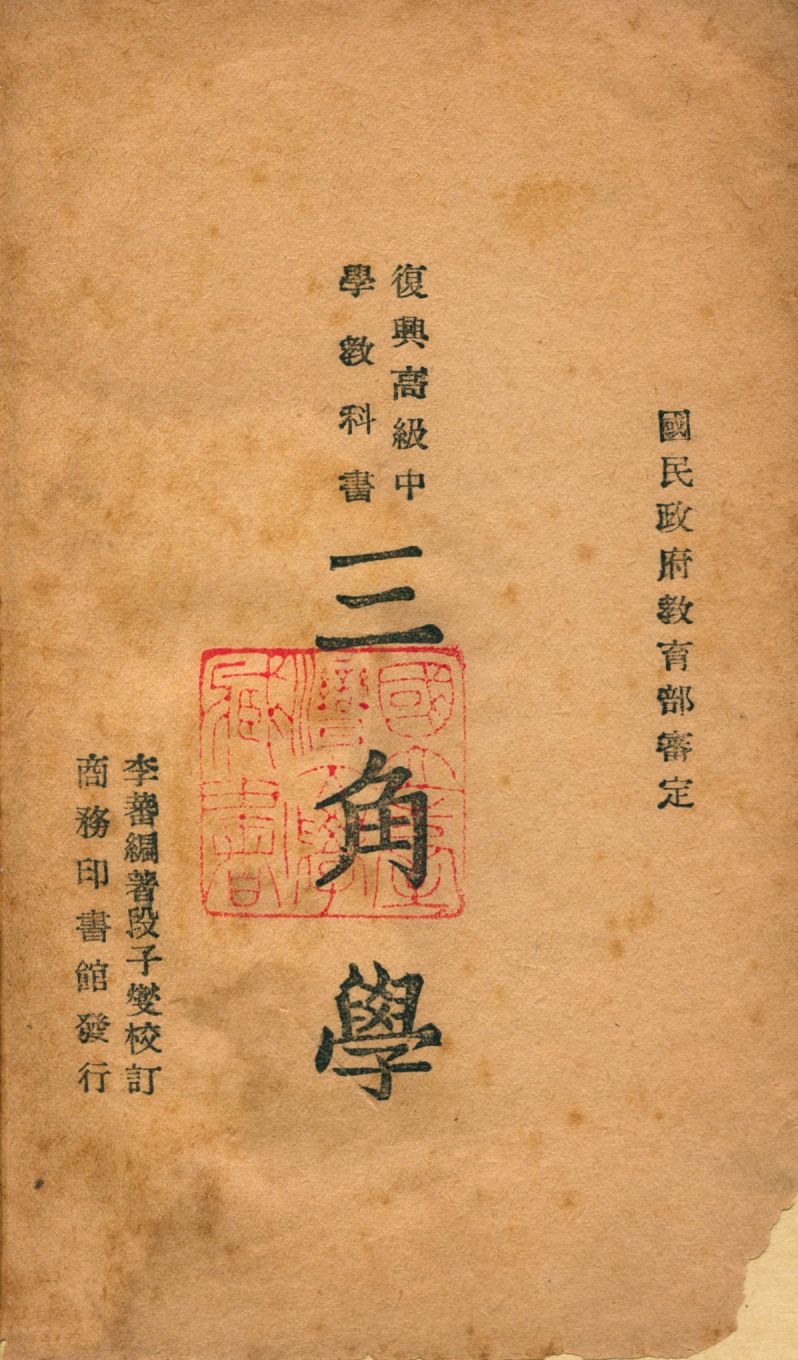 國民政府教育部審定
復興高級中
學教科書
三角學
國立臺
灣大學
藏書
李蕃編著段子燮校訂
商務印書館發行